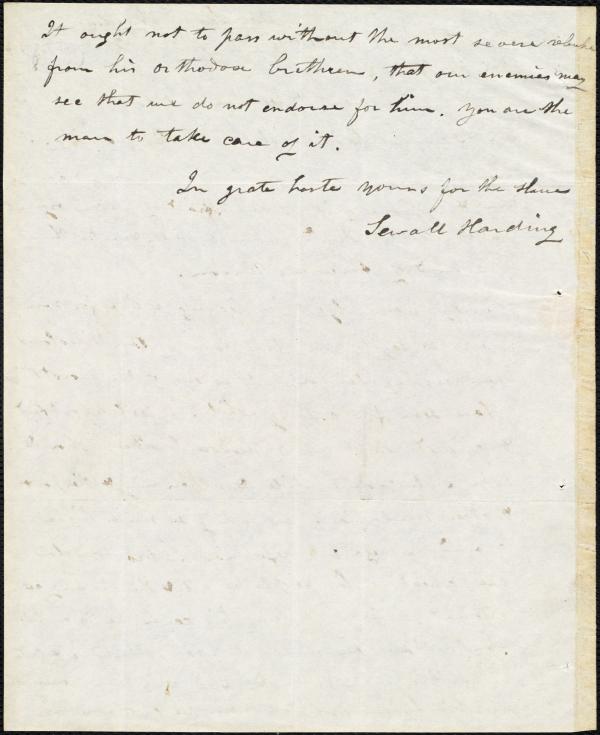 It ought not to pass without the most severe rebuke
from his orthodox brethren, that our enemies may
see that we do not endorse for him. You are the
man to take care of it.
In grate haste yours for the slave
Sewall Harding